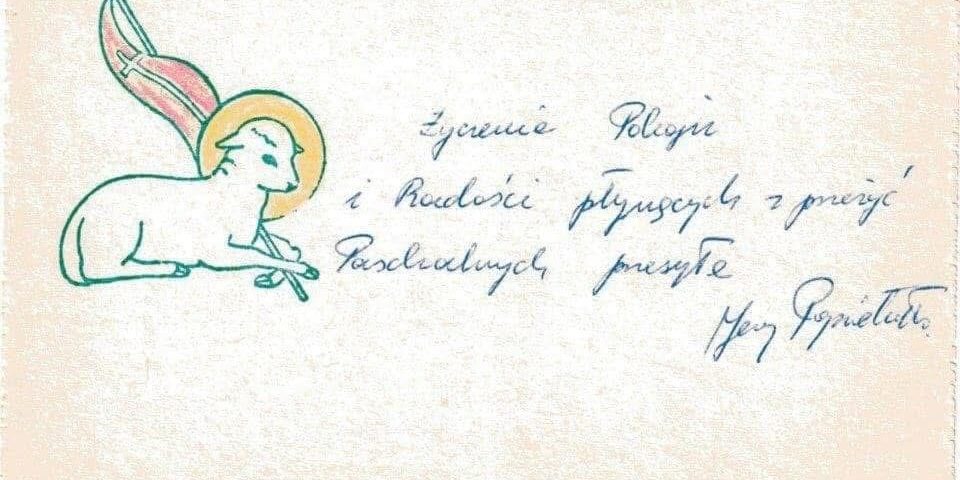 Życzenia Pokoju
i Radości płynących z przeżyć
Paschalnych przesyła
Jerzy Popiełuszko